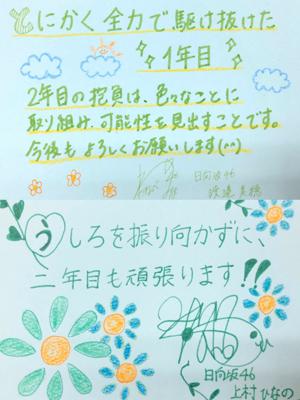 とにかく全力で駆け抜けた
1年目
2年目の抱負は、色々なことに
取り組み、可能性を見出すことです。
今後もよろしくお願いします(^^)
日向坂46
渡邉美穂
うしろを振り向かずに、
二年目も頑張ります!!
日向坂46
上村ひなの